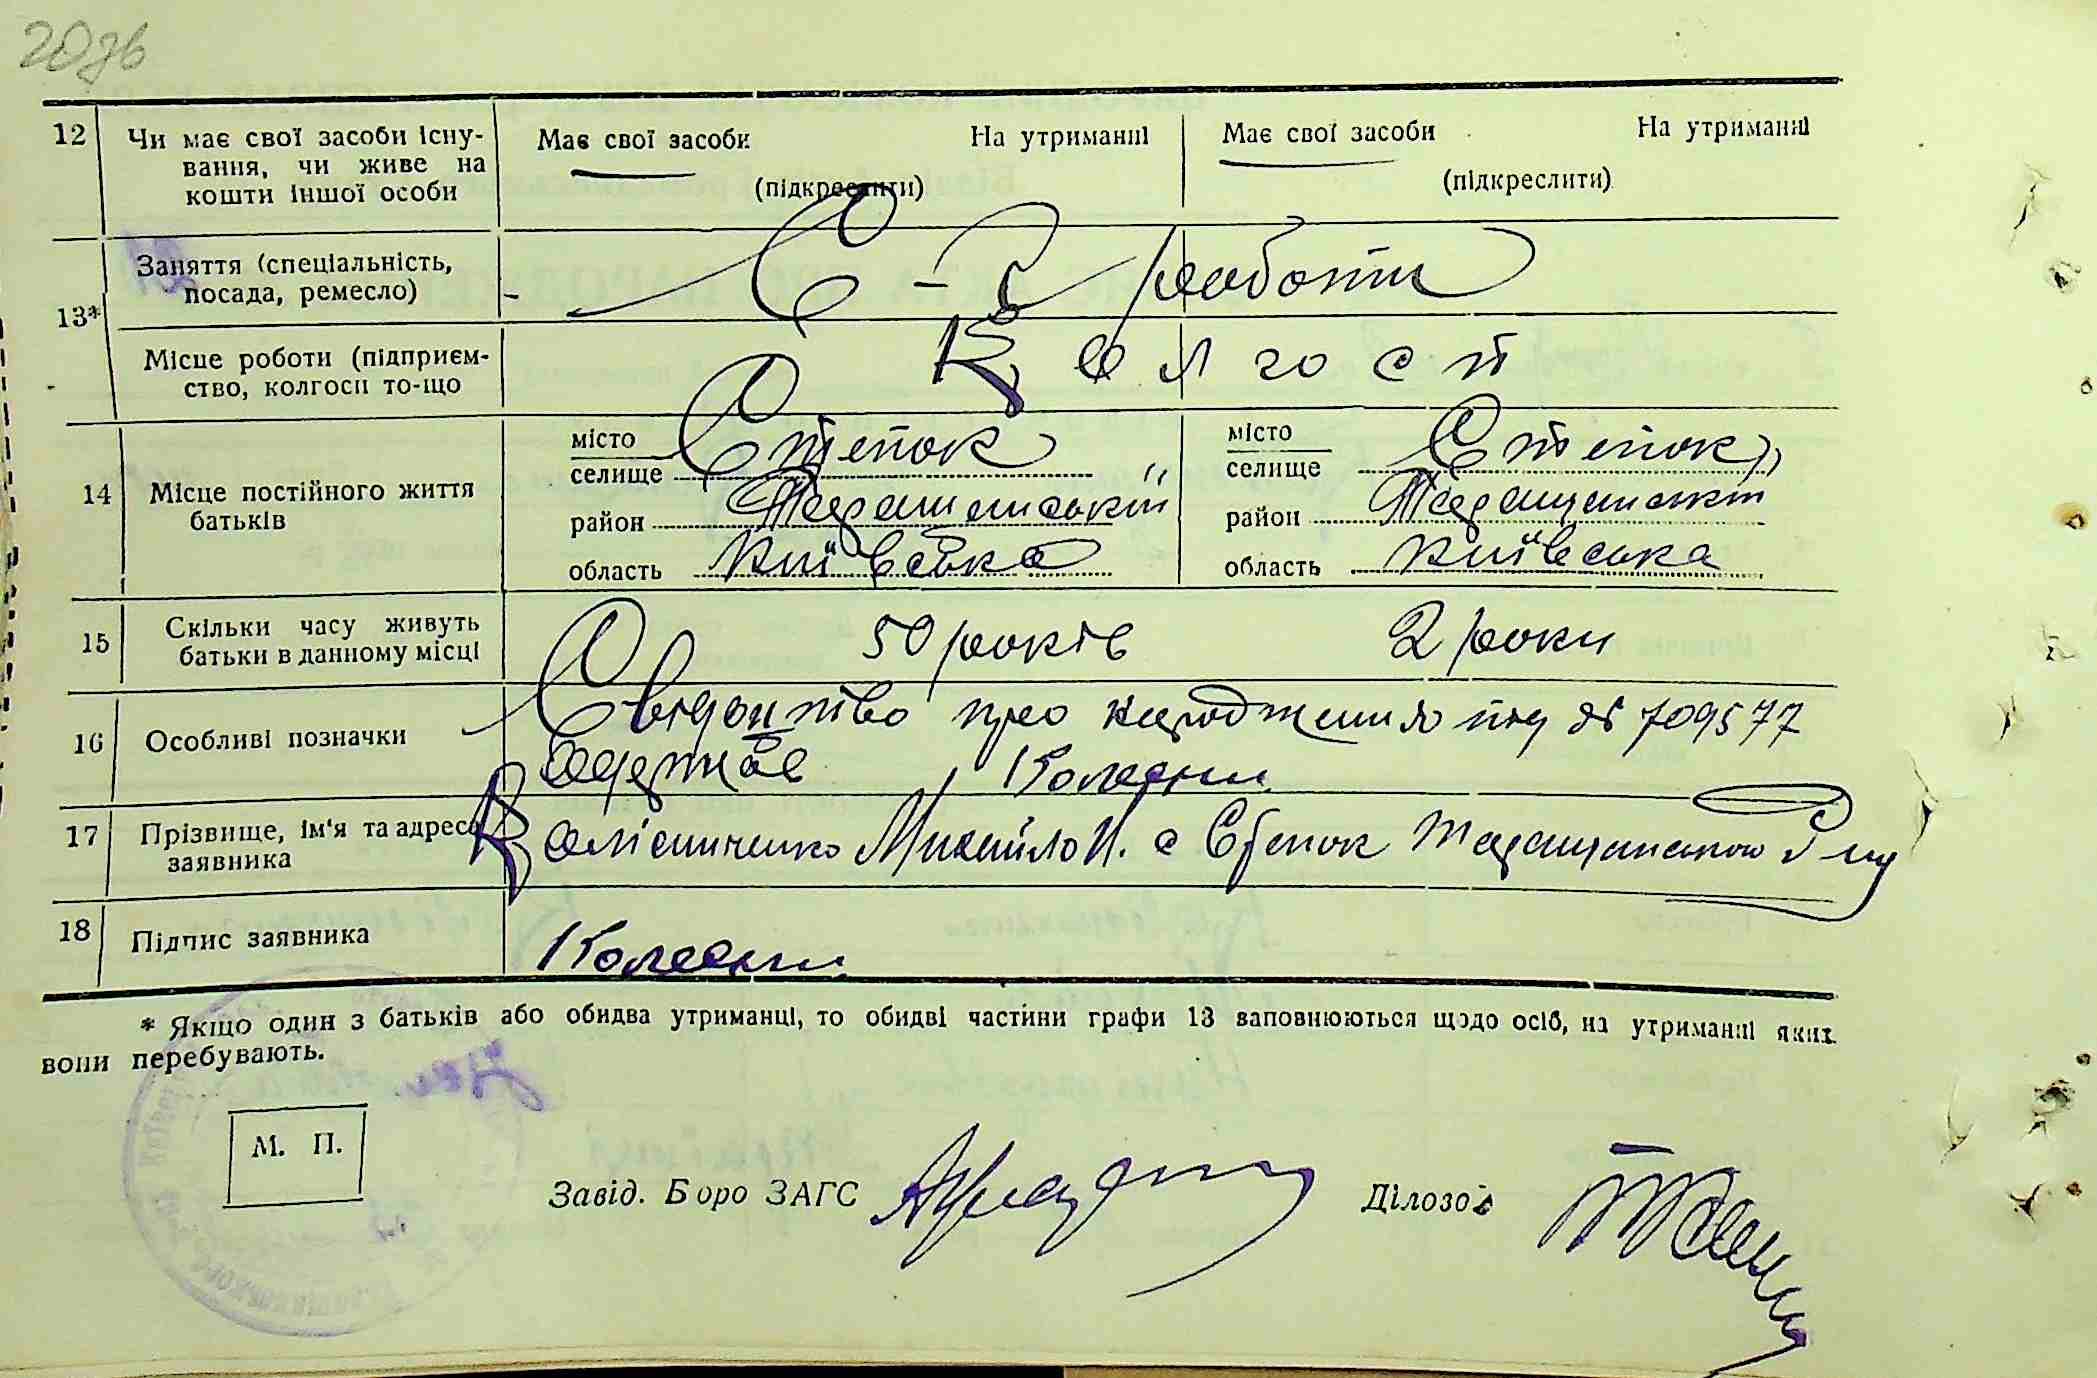 20зв
12 Чи має свої засоби існу- Має свої засоби На утриманні Має свої засоби На утриманні
вання, чи живе на
кошти іншої особи (підкреслити) (підкреслити)
13* Заняття (спеціальність, С-Г роботи
посада, ремесло)
Місце роботи (підприєм- Колгосп
ство, колгосп то-що
14 Місце постійного життя батьків
місто
селище Степок
район Таращанський
область Київська
місто
селище Степок
район Таращанський
область Київська
15 Скільки часу живуть 50 років 2 роки
батьки в данному місці
16 Особливі позначки Свідоцтво про народження під № 709577
одержав Колесни
17 Прізвище, ім'я та адреса Колісниченко Михайло И. с Степок Таращанського р-ну
заявника
18 Підпис заявника Колесни
* Якщо один з батьків або обидва утриманці, то обидві частини графи 13 заповнюються щодо осіб, на утриманні яких
вони перебувають.
М. П.
Завід. Бюро ЗАГС Діловод